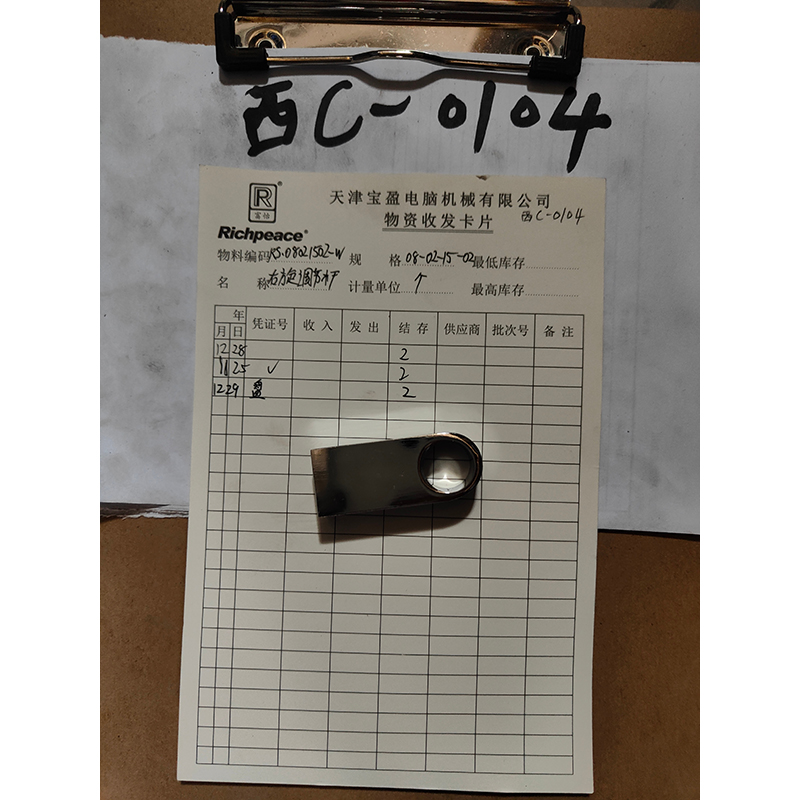 西C-0104
R
富怡
Richpeace
天津宝盈电脑机械有限公司
物资收发卡片
西C-0104
物料编码 RS.08021502-W 规格 08-02-15-02 最低库存
名称 右方包调节 计量单位 个 最高库存
年
月 日 凭证号 收入 发出 结存 供应商 批次号 备注
12 28 2
11 25 √ 2
12 29 盘 2